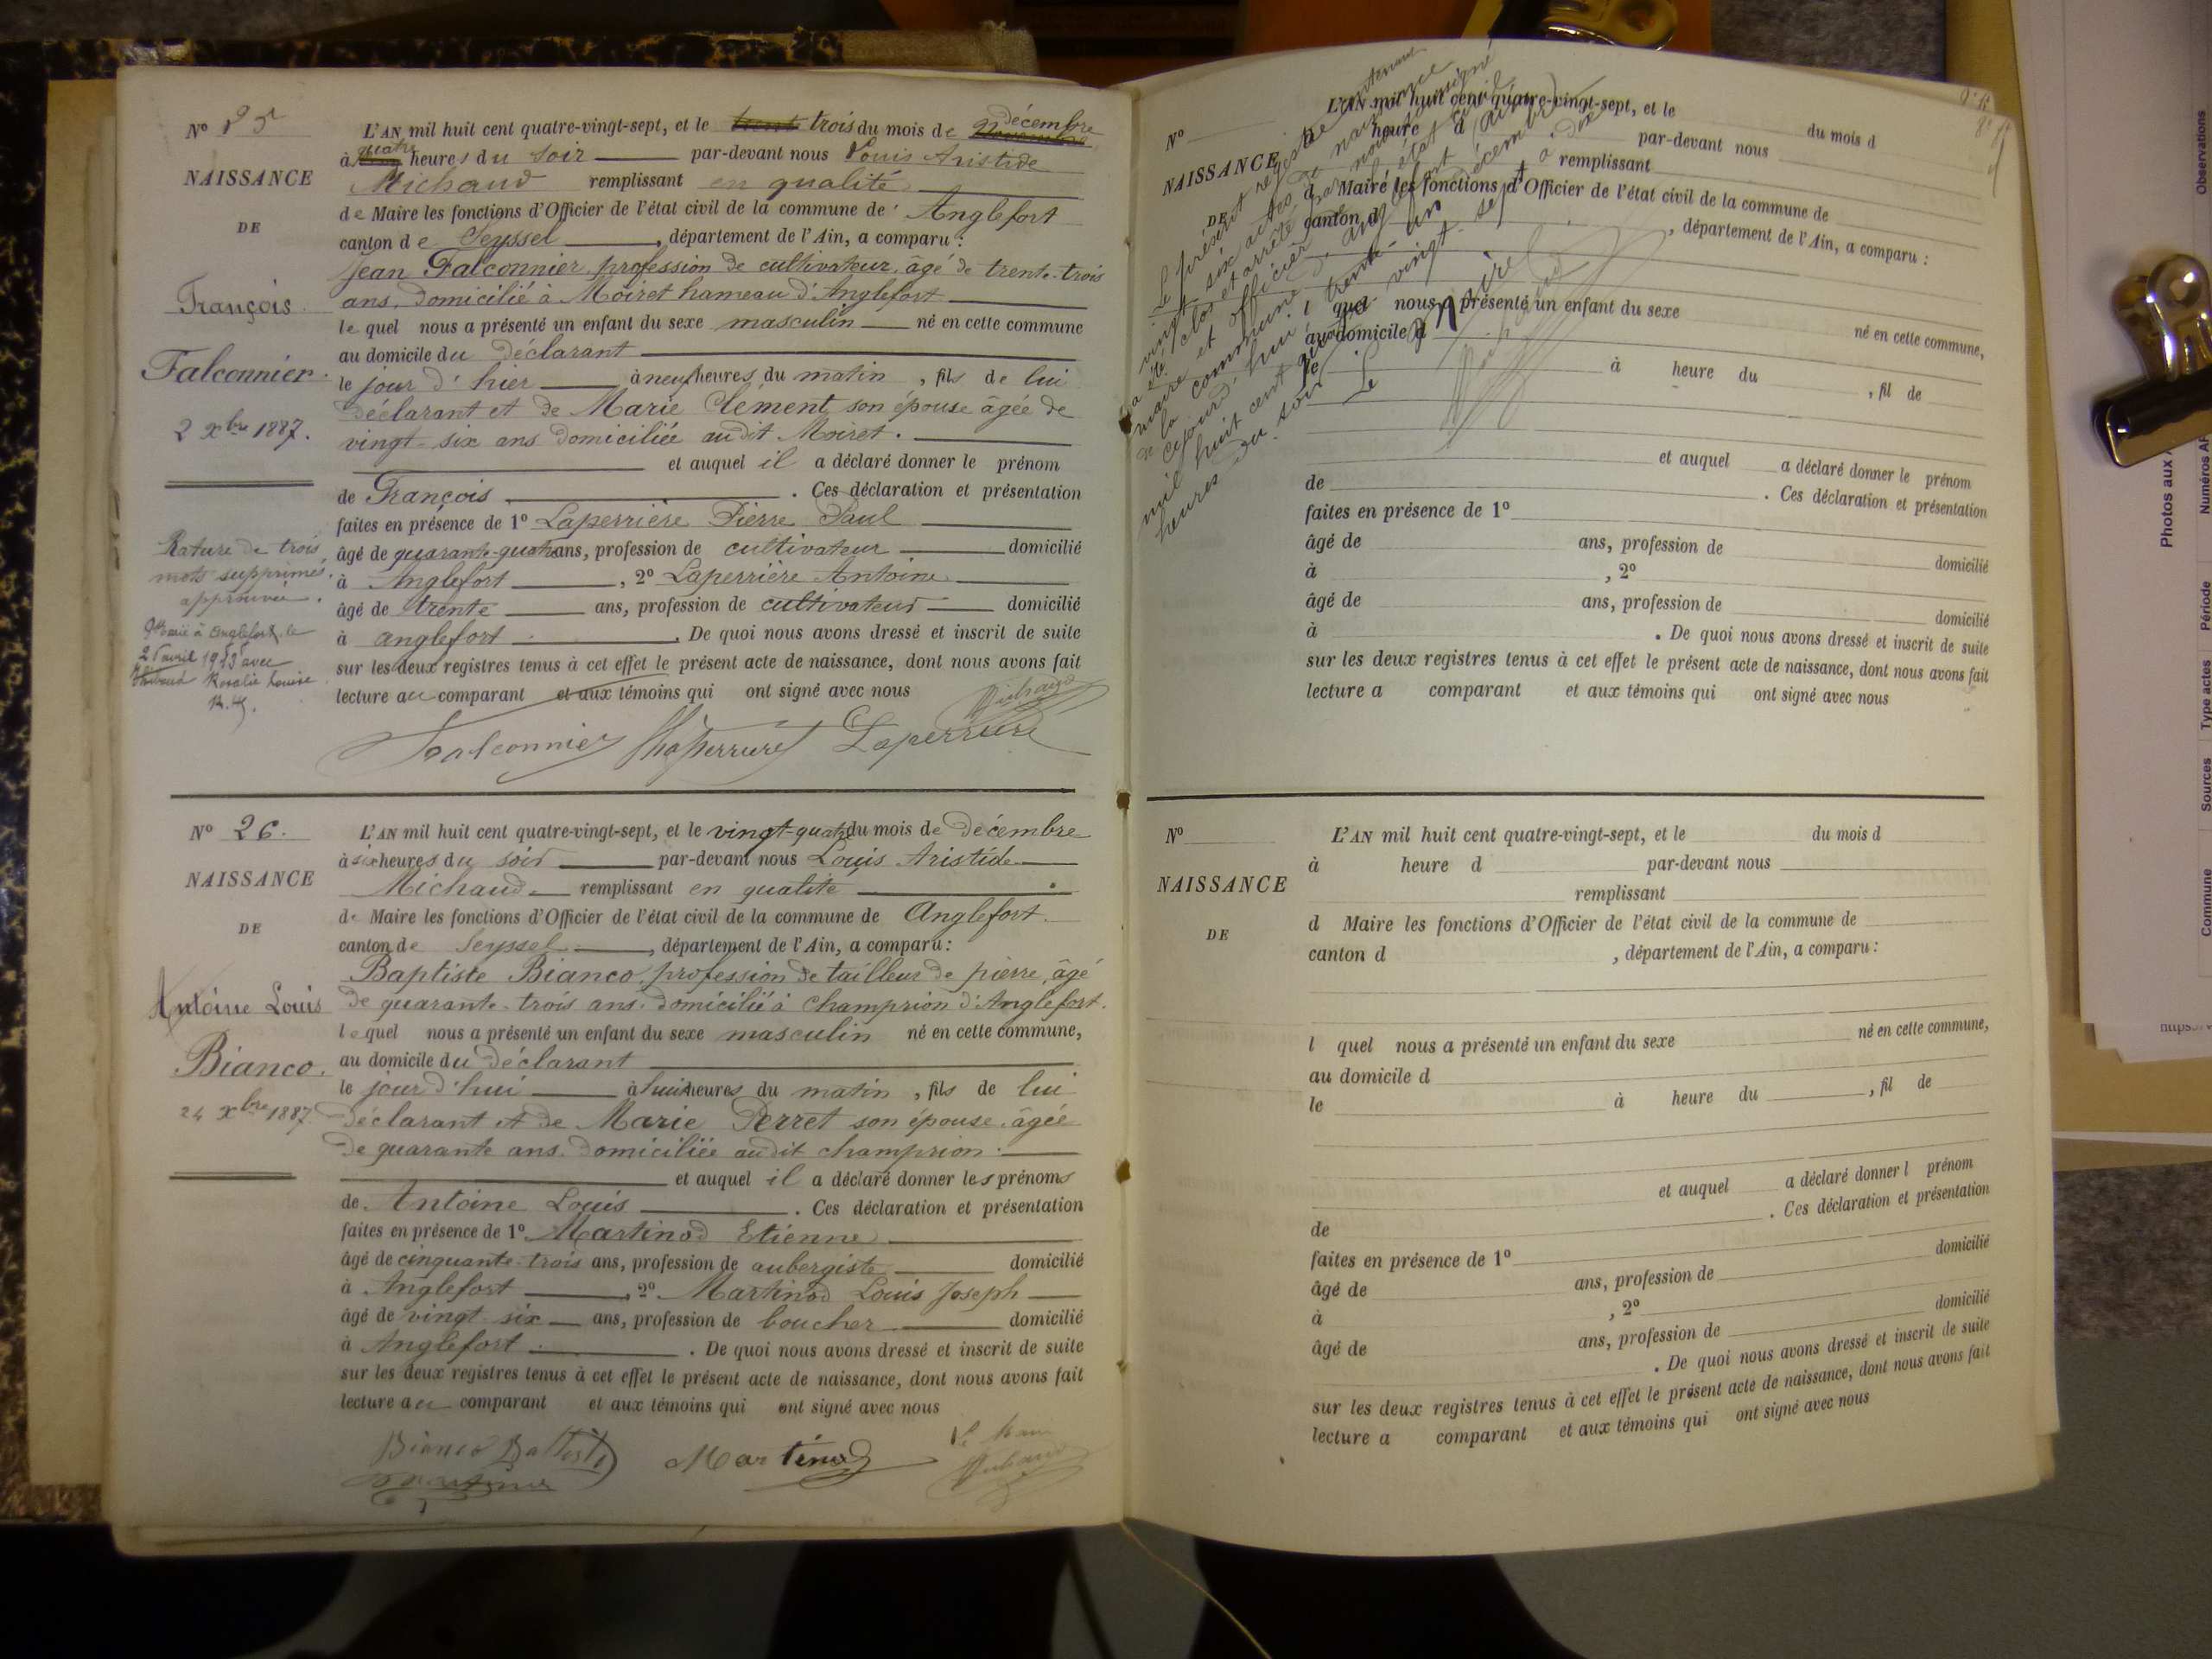 Nº 25
NAISSANCE
DE
François
Falconnier.
2 Xbre 1887.
Rature de trois
mots supprimés
approuvée.
Marié à Anglefort, le
avril avec
Rosalie Louise
L'AN mil huit cent quatre-vingt-sept, et le trente trois du mois de novembre décembre
à quatre heures du soir par-devant nous Louis Aristide
Michaud remplissant en qualité
de Maire les fonctions d'Officier de l'état civil de la commune de Anglefort
canton de Seyssel, département de l'Ain, a comparu :
Jean Falconnier, profession de cultivateur, âgé de trente-trois
ans, domicilié à Moiret hameau d'Anglefort
lequel nous a présenté un enfant du sexe masculin né en cette commune
au domicile du déclarant
le jour d'hier à neuf heures du matin, fils de lui
déclarant et de Marie Clément, son épouse âgée de
vingt-six ans domiciliée audit Moiret.
et auquel il a déclaré donner le prénom
de François. Ces déclaration et présentation
faites en présence de 1º Laperrière Pierre Paul
âgé de quarante-quatre ans, profession de cultivateur domicilié
à Anglefort, 2º Laperrière Antoine
âgé de trente ans, profession de cultivateur domicilié
à anglefort. De quoi nous avons dressé et inscrit de suite
sur les deux registres tenus à cet effet le présent acte de naissance, dont nous avons fait
lecture au comparant et aux témoins qui ont signé avec nous
Michaud
Falconnier Laperrière
Nº 26.
NAISSANCE
DE
Antoine Louis
Bianco.
24 Xbre 1887.
L'AN mil huit cent quatre-vingt-sept, et le vingt-quatre du mois de Décembre
à six heures du soir par-devant nous Louis Aristide
Michaud remplissant en qualité
de Maire les fonctions d'Officier de l'état civil de la commune de Anglefort.
canton de Seyssel, département de l'Ain, a comparu :
Baptiste Bianco, profession de tailleur de pierre, âgé
de quarante-trois ans, domicilié à Champrion d'Anglefort.
lequel nous a présenté un enfant du sexe masculin né en cette commune,
au domicile du déclarant
le jour d'hui à huit heures du matin, fils de lui
déclarant et de Marie Perret son épouse, âgée
de quarante ans, domiciliée audit champrion.
et auquel il a déclaré donner les prénoms
de Antoine Louis. Ces déclaration et présentation
faites en présence de 1º Martinod Etienne
âgé de cinquante-trois ans, profession de aubergiste domicilié
à Anglefort, 2º Martinod Louis Joseph
âgé de vingt-six ans, profession de boucher domicilié
à Anglefort. De quoi nous avons dressé et inscrit de suite
sur les deux registres tenus à cet effet le présent acte de naissance, dont nous avons fait
lecture au comparant et aux témoins qui ont signé avec nous
Bianco Martinod Le Maire
Michaud
Le présent registre contenant
vingt six actes de naissance
a été clos et arrêté par nous soussigné
maire et officier de l'état civil
de la commune d'anglefort (Ain)
cejourd'hui trente un décembre
mil huit cent quatre vingt sept à
heures du soir
Le Maire
Michaud
Nº
NAISSANCE
DE
L'AN mil huit cent quatre-vingt-sept, et le du mois d
heure d par-devant nous
remplissant
d Maire les fonctions d'Officier de l'état civil de la commune de
canton d, département de l'Ain, a comparu :
l quel nous a présenté un enfant du sexe né en cette commune,
au domicile d
le à heure du, fil de
et auquel a déclaré donner le prénom
de . Ces déclaration et présentation
faites en présence de 1º
âgé de ans, profession de domicilié
à , 2º
âgé de ans, profession de domicilié
à . De quoi nous avons dressé et inscrit de suite
sur les deux registres tenus à cet effet le présent acte de naissance, dont nous avons fait
lecture a comparant et aux témoins qui ont signé avec nous
Nº
NAISSANCE
DE
L'AN mil huit cent quatre-vingt-sept, et le du mois d
à heure d par-devant nous
remplissant
d Maire les fonctions d'Officier de l'état civil de la commune de
canton d , département de l'Ain, a comparu :
l quel nous a présenté un enfant du sexe né en cette commune,
au domicile d
le à heure du , fil de
et auquel a déclaré donner l prénom
de . Ces déclaration et présentation
faites en présence de 1º
âgé de ans, profession de domicilié
à , 2º
âgé de ans, profession de domicilié
. De quoi nous avons dressé et inscrit de suite
sur les deux registres tenus à cet effet le présent acte de naissance, dont nous avons fait
lecture a comparant et aux témoins qui ont signé avec nous
Observations
Photos aux
Numéros
Période
Type actes
Sources
Commune